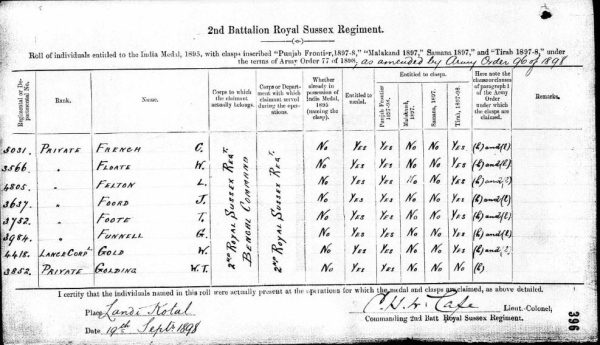 2nd Battalion Royal Sussex Regiment.
Roll of individuals entitled to the India Medal, 1895, with clasps inscribed "Punjab Frontier, 1897-8," "Malakand 1897," "Samana 1897," and "Tirah 1897-8," under
the terms of Army Order 77 of 1898, as amended by Army Order 96 of 1898
Regimental or Departmental No. Rank. Name. Corps to which the claimant actually belongs. Corps or Department with which claimant served during the operations. Whether already in possession of India Medal, 1895 (naming the clasp). Entitled to medal. Entitled to clasps. Punjab Frontier 1897-98. Malakand, 1897. Samana, 1897. Tirah, 1897-98. Here note the clauses of paragraph 1 of the Army Order under which the clasps are claimed. Remarks.
2nd Royal Sussex Regt. Bengal Command
2nd Royal Sussex Regt.
5031. Private French C. No Yes Yes No No Yes (b) and (e)
3566 " Floate W. No Yes Yes No No Yes (b) and (e)
4805. " Felton L. No Yes Yes No No Yes (b) and (e)
3637 " Foord J. No Yes Yes No No Yes (b) and (e)
3752. " Foote T. No Yes Yes No No Yes (b) and (e)
3984. " Funnell G. No Yes Yes No No Yes (b) and (e)
4418. Lance Corpl Gold W. No Yes Yes No No Yes (b) and (e)
3852. Private Golding W.T. No Yes Yes No No No (b)
I certify that the individuals named in this roll were actually present at the operations for which the medal and clasps are claimed, as above detailed.
Place Landi Kotal
Lieut-Colonel,
Date 19th Septr 1898
Commanding 2nd Batt Royal Sussex Regiment.
396